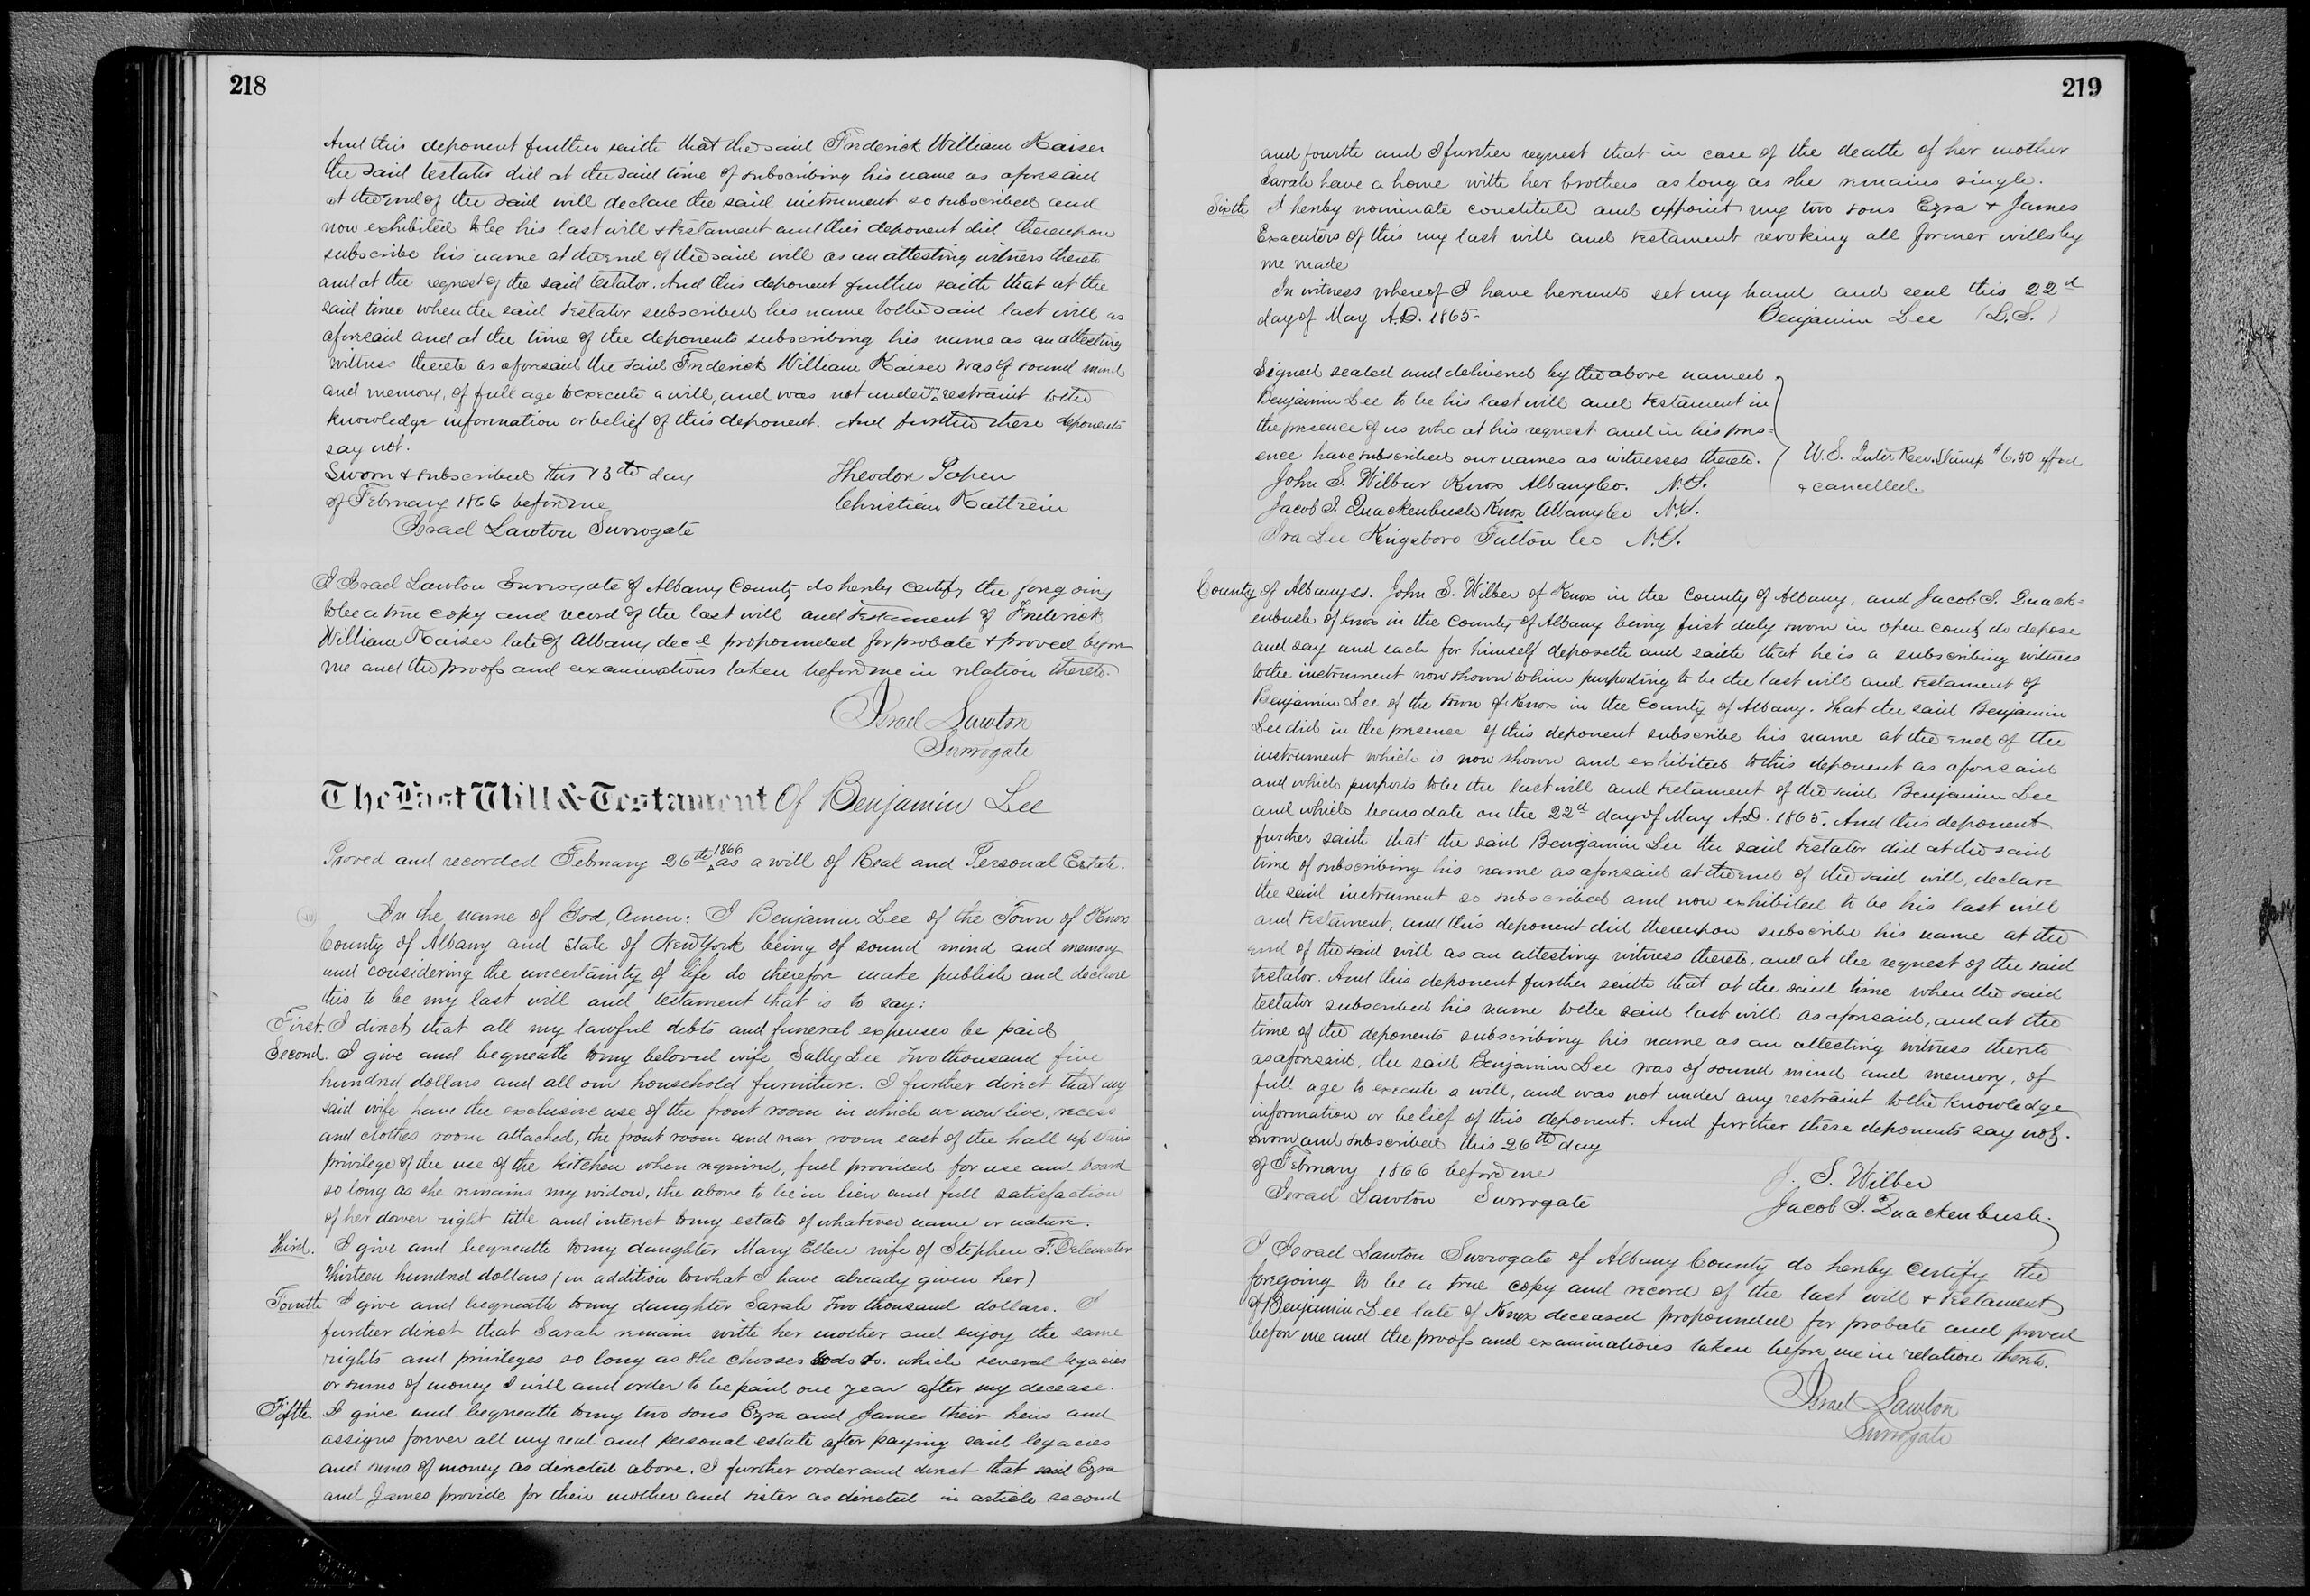 218
And this deponent further saith that the said Frederick William Kaiser
the said testator did at the said time of subscribing his name as aforesaid
at the end of the said will declare the said instrument so subscribed and
now exhibited to be his last will & testament and this deponent did thereupon
subscribe his name at the end of the said will as an attesting witness thereto
and at the request of the said testator. And this deponent further saith that at the
said time when the said testator subscribed his name to the said last will as
aforesaid and at the time of the deponents subscribing his name as an attesting
witness thereto as aforesaid the said Frederick William Kaiser was of sound mind
and memory, of full age to execute a will, and was not under any restraint to the
knowledge information or belief of this deponent. And further these deponents
say not.
Sworn & subscribed this 13th day Theodor Papen
of February 1866 before me Christian Kattrein
Israel Lawton Surrogate
I Israel Lawton Surrogate of Albany County do hereby certify the foregoing
to be a true copy and record of the last will and testament of Frederick
William Kaiser late of Albany decd propounded for probate & proved before
me and the proofs and examinations taken before me in relation thereto.
Israel Lawton
Surrogate
The Last Will & Testament Of Benjamin Lee
Proved and recorded February 26th 1866 as a will of Real and Personal Estate.
In the name of God, Amen: I Benjamin Lee of the Town of Knox
County of Albany and State of New York being of sound mind and memory
and considering the uncertainity of life do therefore make publish and declare
this to be my last will and testament that is to say:
First. I direct that all my lawful debts and funeral expenses be paid
Second. I give and bequeath to my beloved wife Sally Lee two thousand five
hundred dollars and all our household furniture. I further direct that my
said wife have the exclusive use of the front room in which we now live, recess
and clothes room attached, the front room and rear room east of the hall up stairs
privilege of the use of the kitchen when required, fuel provided for use and board
so long as she remains my widow, the above to be in lieu and full satisfaction
of her dower right title and interest to my estate of whatever name or nature.
Third. I give and bequeath to my daughter Mary Ellen wife of Stephen F. Delamater
thirteen hundred dollars (in addition to what I have already given her)
Fourth I give and bequeath to my daughter Sarah two thousand dollars. I
further direct that Sarah remain with her mother and enjoy the same
rights and privileges so long as she chooses to do so. which several legacies
or sums of money I will and order to be paid one year after my decease.
Fifth. I give and bequeath to my two sons Ezra and James their heirs and
assigns forever all my real and personal estate after paying said legacies
and sums of money as directed above. I further order and direct that said Ezra
and James provide for their mother and sister as directed in article second
219
and fourth and I further request that in case of the death of her mother
Sarah have a home with her brothers as long as she remains single.
Sixth I hereby nominate constitute and appoint my two sons Ezra & James
Executors of this my last will and testament revoking all former wills by
me made
In witness whereof I have hereunto set my hand and seal this 22d
day of May A.D. 1865. Benjamin Lee (L.S.)
Signed sealed and delivered by the above named
Benjamin Lee to be his last will and testament in
the presence of us who at his request and in his pres=
ence have subscribed our names as witnesses thereto. U.S. Inter Rev. Stamp $6.50 affxd
John S. Wilbur Knox Albany Co. N.Y. & cancelled.
Jacob I. Quackenbush Knox Albany Co N.Y.
Ira Lee Kingsboro Fulton Co N.Y.
County of Albany ss. John S. Wilber of Knox in the County of Albany, and Jacob I. Quack=
enbush of Knox in the County of Albany being first duly sworn in open court do depose
and say and each for himself deposeth and saith that he is a subscribing witness
to the instrument now shown to him purporting to be the last will and testament of
Benjamin Lee of the town of Knox in the County of Albany. That the said Benjamin
Lee did in the presence of this deponent subscribe his name at the end of the
instrument which is now shown and exhibited to this deponent as aforesaid
and which purports to be the last will and testament of the said Benjamin Lee
and which bears date on the 22d day of May A.D. 1865. And this deponent
further saith that the said Benjamin Lee the said testator did at the said
time of subscribing his name as aforesaid at the end of the said will, declare
the said instrument so subscribed and now exhibited to be his last will
and testament, and this deponent did thereupon subscribe his name at the
end of the said will as an attesting witness thereto, and at the request of the said
testator. And this deponent further saith that at the said time when the said
testator subscribed his name to the said last will as aforesaid, and at the
time of the deponents subscribing his name as an attesting witness thereto
as aforesaid, the said Benjamin Lee was of sound mind and memory, of
full age to execute a will, and was not under any restraint to the knowledge
information or belief of this deponent. And further these deponents say not.
Sworn and subscribed this 26th day
of February 1866 before me J. S. Wilber
Israel Lawton Surrogate Jacob I. Quackenbush.
I Israel Lawton Surrogate of Albany County do hereby certify the
foregoing to be a true copy and record of the last will & testament
of Benjamin Lee late of Knox deceased propounded for probate and proved
before me and the proofs and examinations taken before me in relation thereto.
Israel Lawton
Surrogate